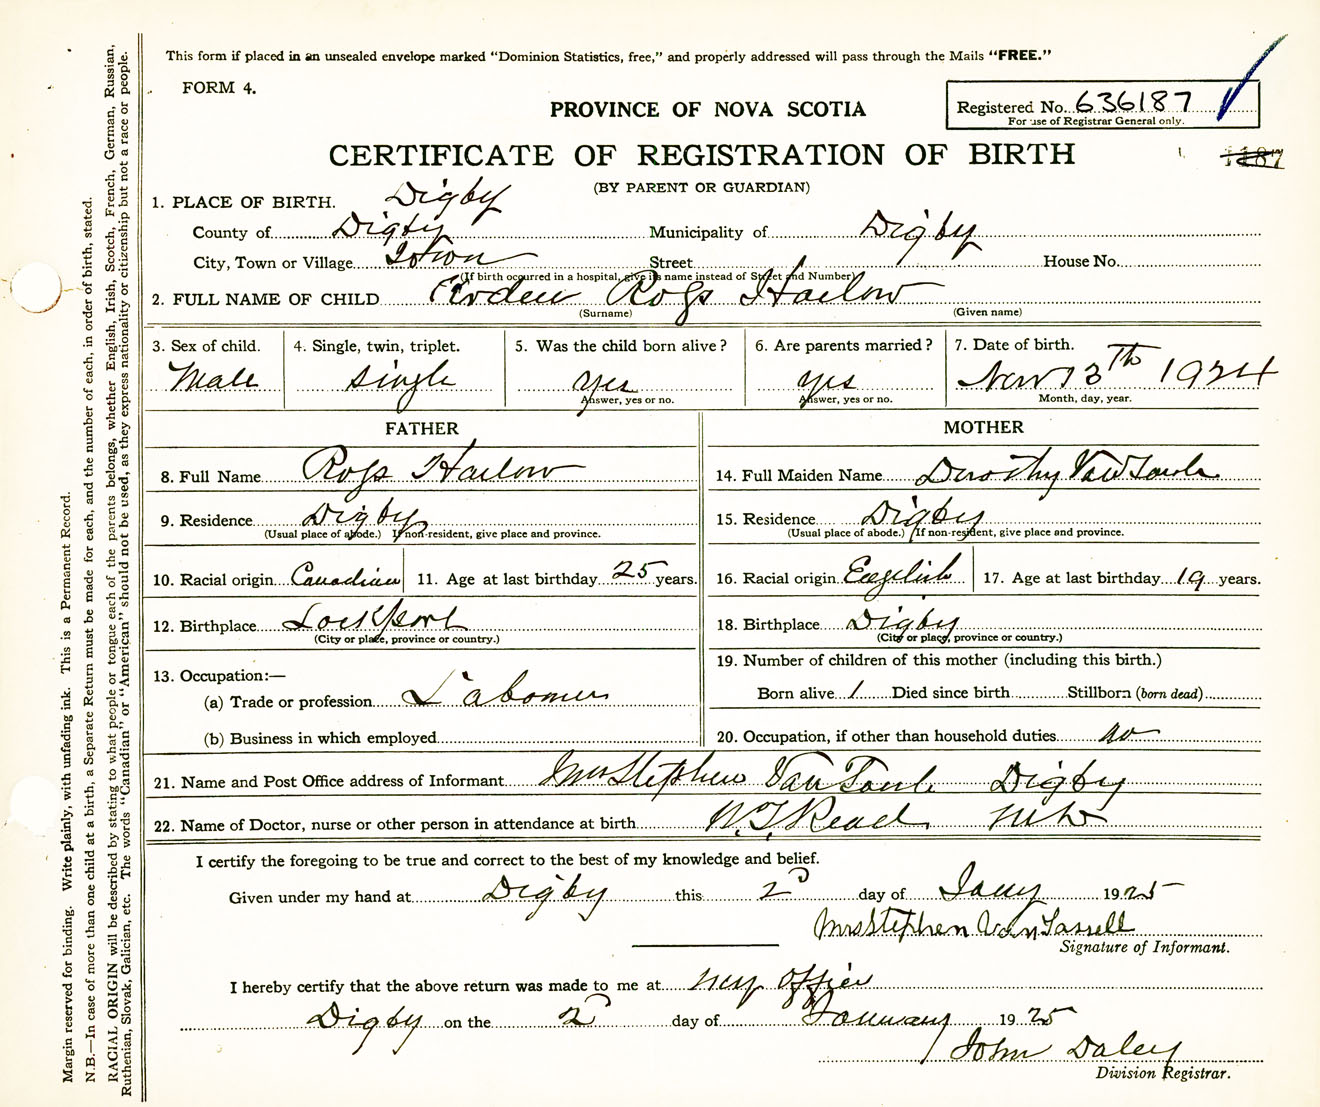 This form if placed in an unsealed envelope marked "Dominion Statistics, free," and properly addressed will pass through the Mails "FREE."
FORM 4.
PROVINCE OF NOVA SCOTIA
Registered No. 636187
For use of Registrar General only.
CERTIFICATE OF REGISTRATION OF BIRTH
1187
(BY PARENT OR GUARDIAN)
1. PLACE OF BIRTH. Digby
County of Digby Municipality of Digby
City, Town or Village Town Street House No.
(If birth occurred in a hospital, give its name instead of Street and Number)
2. FULL NAME OF CHILD Arden Ross Harlow
(Surname) (Given name)
3. Sex of child. 4. Single, twin, triplet. 5. Was the child born alive? 6. Are parents married? 7. Date of birth.
Male single yes yes Nov 13th 1924
Answer, yes or no. Answer, yes or no. Month, day, year.
FATHER MOTHER
8. Full Name Ross Harlow 14. Full Maiden Name Dorothy Van
9. Residence Digby 15. Residence Digby
(Usual place of abode.) If non-resident, give place and province. (Usual place of abode.) If non-resident, give place and province.
10. Racial origin Canadian 11. Age at last birthday 25 years. 16. Racial origin English 17. Age at last birthday 19 years.
12. Birthplace Lockport 18. Birthplace Digby
(City or place, province or country.) (City or place, province or country.)
13. Occupation:— 19. Number of children of this mother (including this birth.)
(a) Trade or profession Labourer Born alive 1 Died since birth Stillborn (born dead)
(b) Business in which employed 20. Occupation, if other than household duties no
21. Name and Post Office address of Informant Mrs Stephen Van Digby
22. Name of Doctor, nurse or other person in attendance at birth Read
I certify the foregoing to be true and correct to the best of my knowledge and belief.
Given under my hand at Digby this 2d day of Jany 1925
Mrs Stephen Van Tassell
Signature of Informant.
I hereby certify that the above return was made to me at my office
Digby on the 2d day of January 1925
John Daley
Division Registrar.
Margin reserved for binding. Write plainly, with unfading ink. This is a Permanent Record.
N.B.—In case of more than one child at a birth, a Separate Return must be made for each, and the number of each, in order of birth, stated.
RACIAL ORIGIN will be described by stating to what people or tongue each of the parents belongs, whether English, Irish, Scotch, French, German, Russian,
Ruthenian, Slovak, Galician, etc. The words "Canadian" or "American" should not be used, as they express nationality or citizenship but not a race or people.